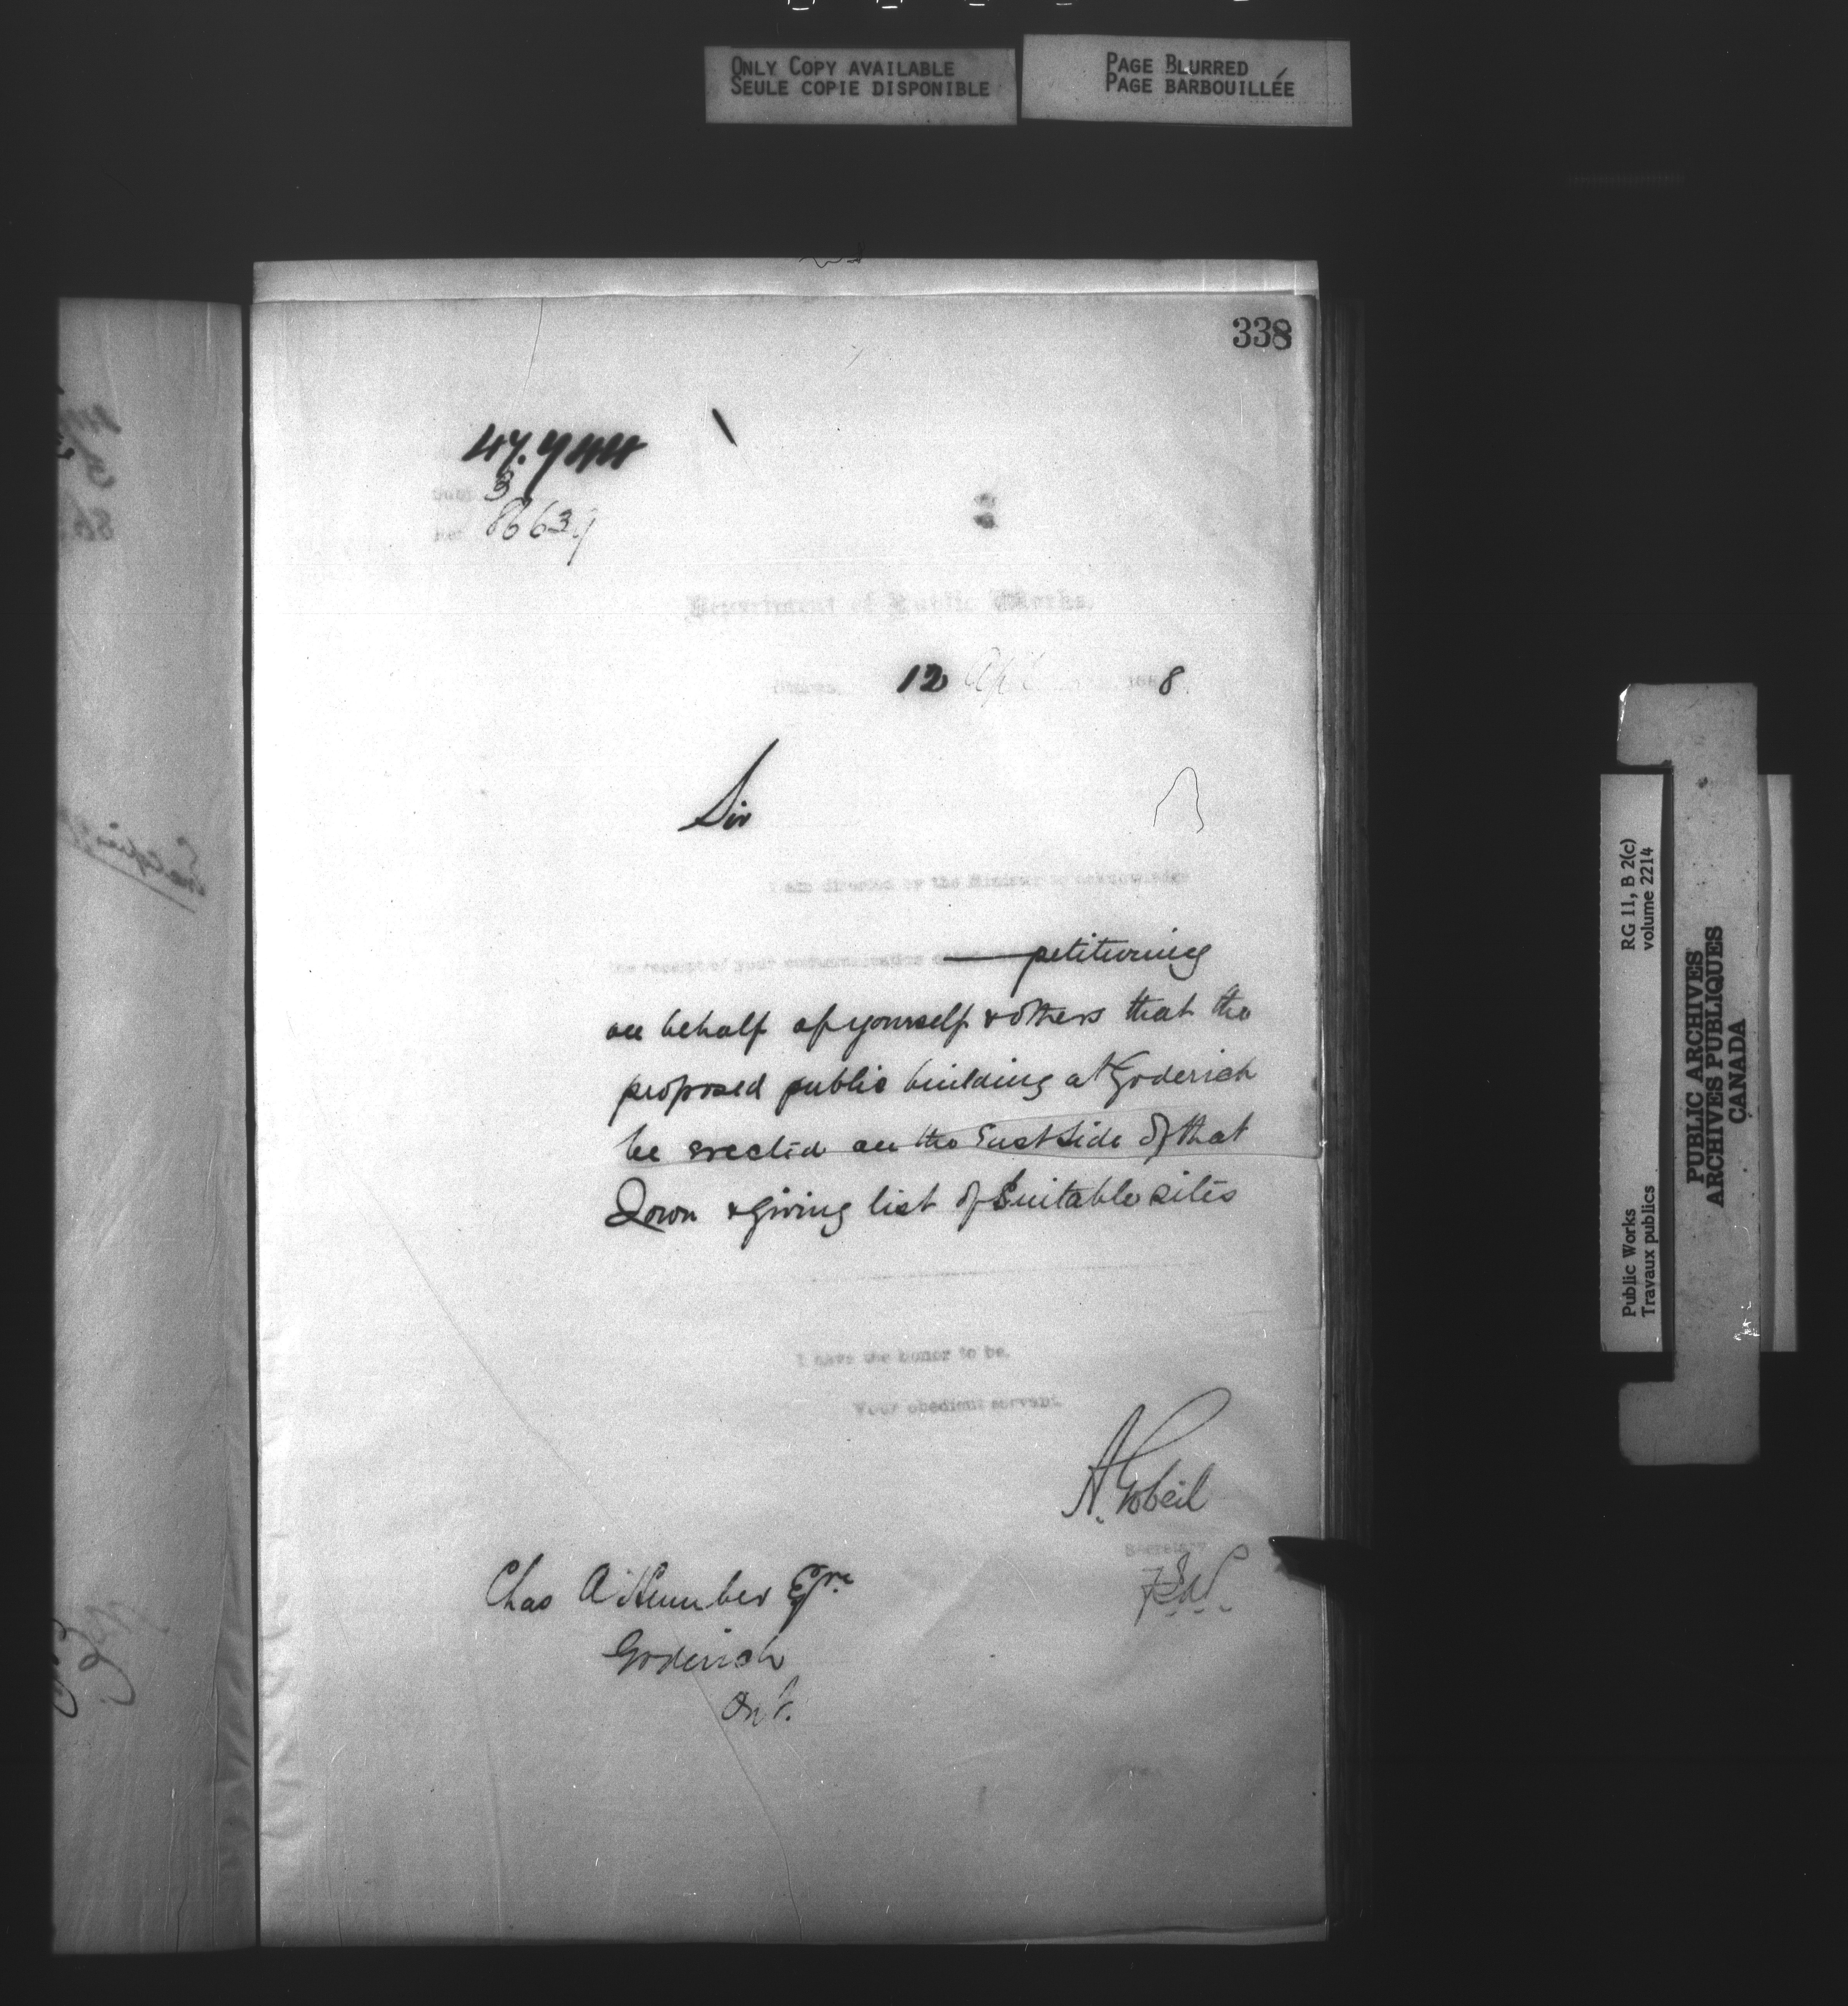 ONLY COPY AVAILABLE
SEULE COPIE DISPONIBLE
PAGE BLURRED
PAGE BARBOUILLÉE
338
86639
Department of Public Works,
12 Apl 1888
Sir
I am directed by the Minister to acknowledge
the receipt of your communication petitioning
on behalf of yourself & others that the
proposed public building at Goderich
be erected on the East Side of that
Town & giving list of Suitable sites
I have the honor to be,
Your obedient servant,
A. Gobeil
Secretary
Chas A Humber Esqre
Goderich
Ont.
RG 11, B 2(c)
volume 2214
Public Works
Travaux publics
PUBLIC ARCHIVES
ARCHIVES PUBLIQUES
CANADA